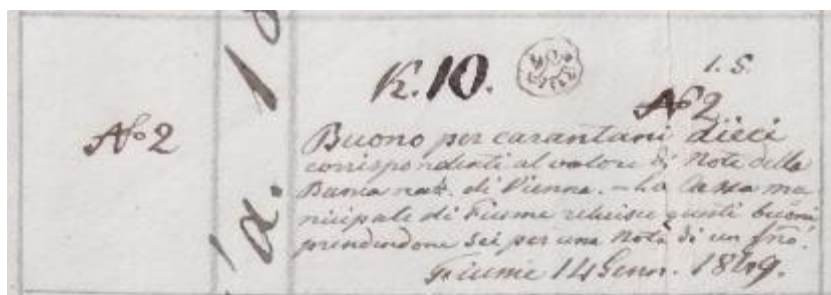 No 2
K. 10.
I. S.
No 2
Buono per carantani dieci
corrispondenti al valore di Note della
Banca naz. di Vienna. – La Cassa mu
nicipale di Fiume riceve questi buoni
prendendone sei per una Nota di un fno.
Fiume 14 Genn. 1849.